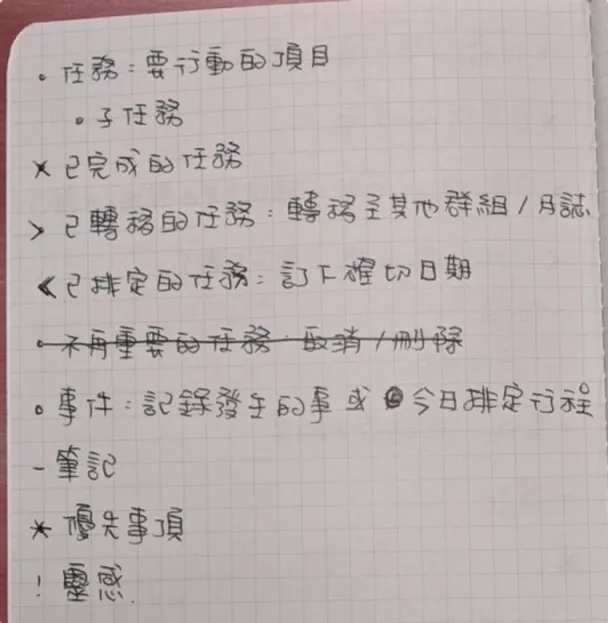 • 任務：要行動的項目
• 子任務
× 已完成的任務
> 已轉移的任務：轉移至其他群組/月誌
< 已排定的任務：訂下確切日期
• 不再重要的任務：取消/刪除
○ 事件：記錄發生的事或今日排定行程
- 筆記
* 優先事項
! 靈感